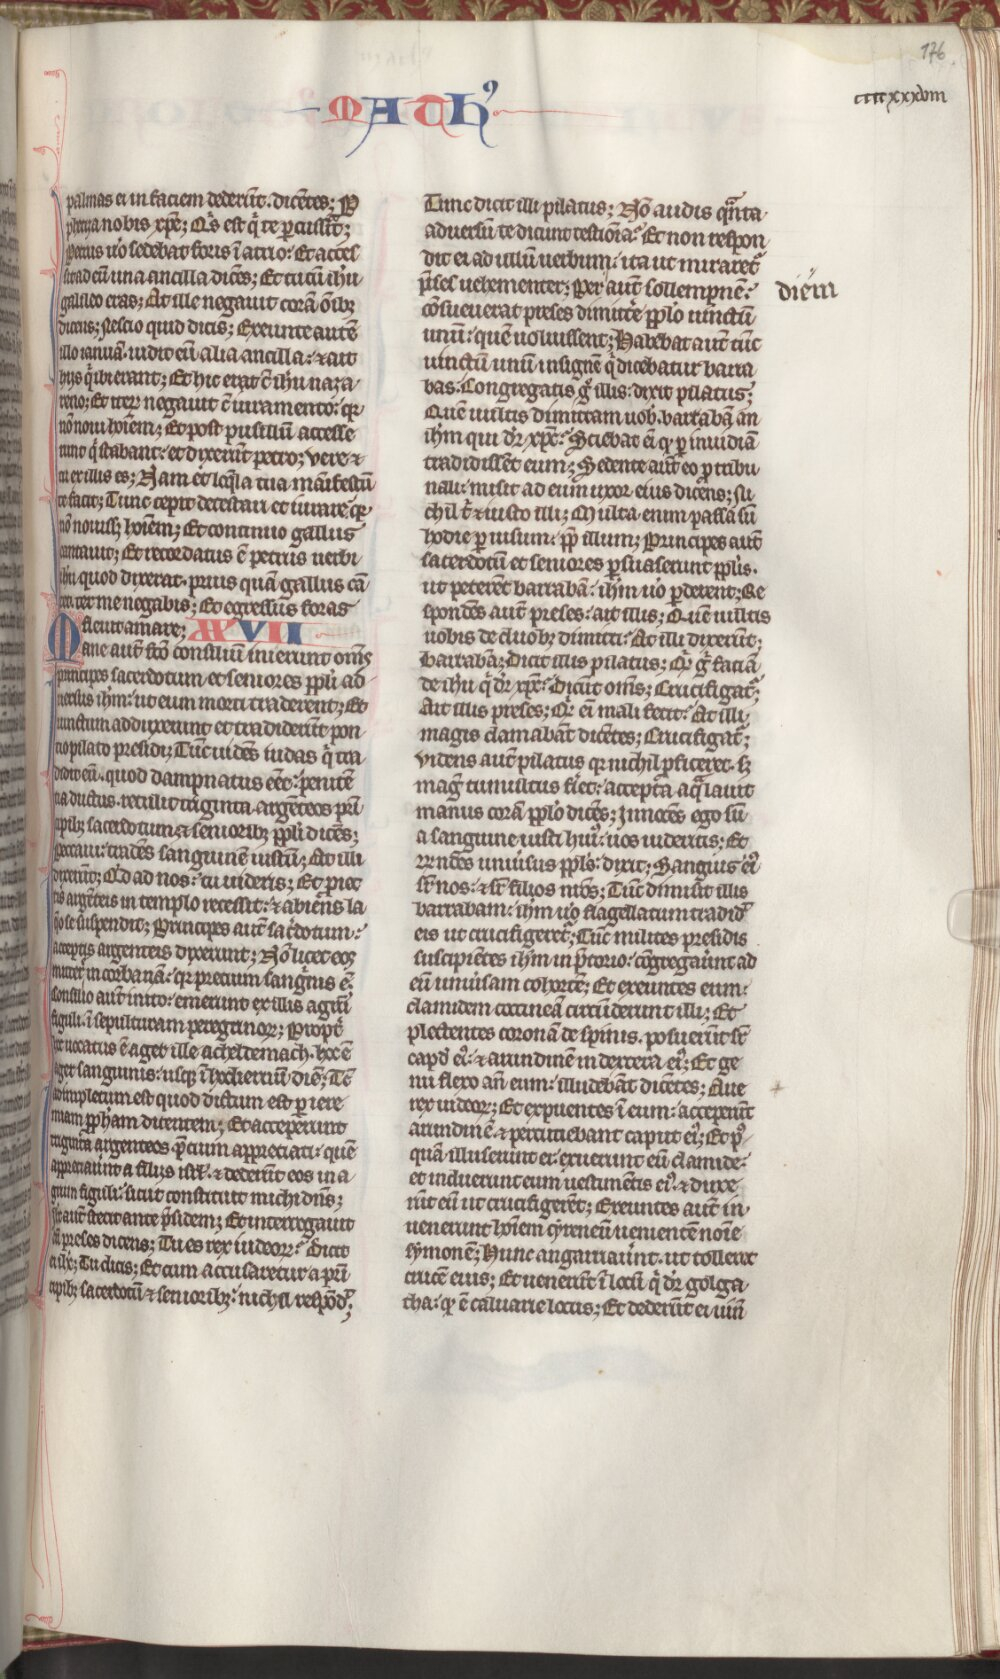 176
MATHꝰ
ccccxxxviii
palmas ei in faciem dederūt. dicētes; P
phetiza nobis xp̄e; Qͥs est qͥ te ꝑcussit;
Petrus ū̊o sedebat foris ī atrio: Et acces
sit ad eū una ancilla dicēs; Et tu cū ih̄u
galileo eras; At ille negauit corā oīb;
dicens; Nescio quid dicis; Exeunte autē
illo ianuā. uidit eū alia ancilla: ⁊ ait
hiis qͥ ibi erant; Et hic erat cū ih̄u naza
reno; Et iteꝝ negauit cū iuramento: qꝛ
nō noui hoīem; Et post pusillū accesse
runt qͥ stabant: et dixerūt petro; Vere ⁊
tu ex illis es; Nam et loqͤla tua māifestū
te facit; Tunc cepit detestari et iurare qꝛ
nō nouiss; hoīem; Et continuo gallus
cantauit; Et recordatus ē petrus uerbi
ih̄u quod dixerat. prius quā gallus cā
tet. ter me negabis; Et egressus foras
fleuit amare; XXVII
Mane autē fc̄o consiliū inierunt om̄s
principes sacerdotum et seniores pp̄li ad
uersus ih̄m: ut eum morti traderent; Et
uinctum adduxerunt et tradiderūt pon
tio pilato presidi; Tūc uidēs iudas qͥ tra
didit eū. quod dampnatus eēt: peniten
tia ductus. retulit triginta argēteos prī
cipib; sacerdotum ⁊ seniorib; pp̄li dicēs;
Peccaui: tradēs sanguinē iustū; At illi
dixerūt; Qͥd ad nos: tu uideris; Et proiec
tis argēteis in templo recessit: ⁊ abiēns la
q̄o se suspendit; Principes autē sac̄dotum:
acceptis argenteis dixerunt; Nō licet eos
mittere in corbanā: qꝛ precium sangͥnis ē;
Consilio autē inito: emerunt ex illis agrū
figuli. ī sepulturam peregrinoꝝ; Propt̄
hoc uocatus ē ager ille acheldemach. hoc ē
ager sanguinis: usqꝫ ī hodiernū diē; Tūc
adimpletum est quod dictum est ꝑ iere
miam pp̄ham dicentem; Et acceperunt
triginta argenteos p̄cium appreciati: quē
appreciauīnt a filiis isrl̄. ⁊ dederūt eos in a
grum figuli: sicut constituit michi dn̄s;
Ih̄c autē stetit ante p̄sidem; Et interrogauit
eū preses dicens; Tu es rex iudeoꝝ: Dicit
ei ih̄c; Tu dicis; Et cum accusaretur a prī
cipib; sacerdotū ⁊ seniorib;: nichil respōdͭ;
Tunc dicit illi pilatus; Nō audis qͣnta
aduersū te dicunt testiōīa: Et non respon
dit ei ad ullū uerbum: ita ut miraretͬ
p̄ses uehementer; Per autē sollempnē: diem
cōsueuerat preses dimittͤe pp̄lo uinctū
unū: quē uoluissent; Habebat autē tūc
uinctū unū insignē qͥ dicebatur barra
bas. Congregatis gͦ illis: dixit pilatus;
Quē uultis dimittam uob̄. barrabā an
ih̄m qui dr̄ xp̄c: Sciebat ēī qꝙ ꝑ inuidiā
tradidissēt eum; Sedente autē eo ꝓ tribu
nali: misit ad eum uxor eius dicens; Ni
chil tͥ ⁊ iusto illi; Multa enim passa sū
hodie ꝑ uisum: pp̄ illum; Principes autē
sacerdotū et seniores ꝑsuaserunt pp̄lis.
ut peterēt barrabā: ih̄m ū̊o ꝑderent; Re
spondēs autē preses: ait illis; Quē uultis
uobis de duob; dimitti: At illi dixerūt;
Barrabā; Dicit illis pilatus; Qͥd gͦ faciā
de ih̄u qͥ dr̄ xp̄c: Dicūt om̄s; Crucifigatͬ;
Ait illis preses; Qͥd ēī mali fecit: At illi
magis clamabāt dicētes; Crucifigatͬ;
Videns autē pilatus qꝛ nichil ꝓficeret. sꝫ
magͥ tumultus fͥet: accepta aqͣ lauit
manus corā pp̄lo dicēs; Innocēs ego sū
a sanguine iusti huiꝰ: uos uideritis; Et
rn̄dēns uniūsus pp̄ls: dixit; Sanguis eiꝰ
sͬ nos: ⁊ sͬ filios nr̄os; Tūc dimisit illis
barrabam: ih̄m ū̊o flagellatum tradidͭ
eis ut crucifigeretͬ; Tūc milites presidis
suscipiētes ih̄m in p̄torio: cōgregauīnt ad
eū uniūsam cohortē; Et exeuntes eum:
clamidem coccineā circūdederunt illi; Et
plectentes coronā de spinis. posuerūt sͬ
capdͭ eiꝰ: ⁊ arundinem in dextera eiꝰ; Et ge
nu flexo an̄ eum: illudebāt dicētes; Aue
rex iudeoꝝ; Et expuentes ī eum: acceperūt
arundinē. ⁊ percutiebant caput eiꝰ; Et pͦ
quā illuserunt ei: exuerunt eū clamide:
et induerunt eum uestimētis eiꝰ. ⁊ duxe
rūt eū ut crucifigerēt; Exeuntes autē in
uenerunt hoīem cyreneū uenientē noīe
symonē; Hunc angariauīnt. ut tolleret
crucē eius; Et uenerūt ī locū qͥ dr̄ golga
tha: qꝙ ē caluarie locus; Et dederūt ei uinū